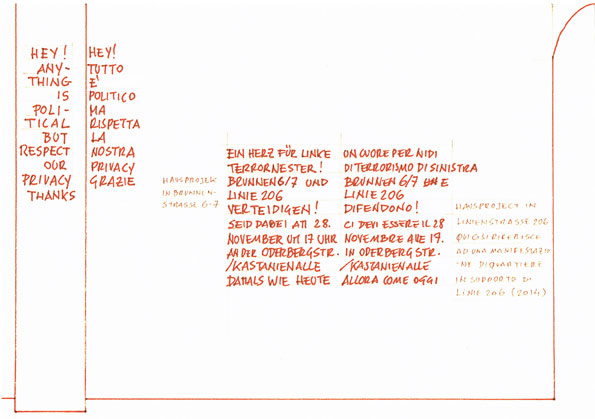 HEY!
ANY-
THING
IS
POLI-
TICAL
BUT
RESPECT
OUR
PRIVACY
THANKS
HEY!
TUTTO
E'
POLITICO
MA
RISPETTA
LA
NOSTRA
PRIVACY
GRAZIE
HAUSPROJEK
IN BRUNNEN-
STRASSE 6-7
EIN HERZ FÜR LINKE
TERRORNESTER!
BRUNNEN6/7 UND
LINIE 206
VERTEIDIGEN!
SEID DABEI AM 28.
NOVEMBER UM 17 UHR
AN DER ODERBERGSTR.
/KASTANIENALLE
DAMALS WIE HEUTE
UN CUORE PER NIDI
DI TERRORISMO DI SINISTRA
BRUNNEN 6/7 E
LINIE 206
DIFENDONO!
CI DEVI ESSERE IL 28
NOVEMBRE ALLE 17.
IN ODERBERGSTR.
/KASTANIENALLE
ALLORA COME OGGI
HAUSPROJECT IN
LINIENSTRASSE 206
QUI CI SI RIFERISCE
AD UNA MANIFESTAZIO
NE DI QUARTIERE
IN SUPPORTO DI
LINIE 206 (2014)